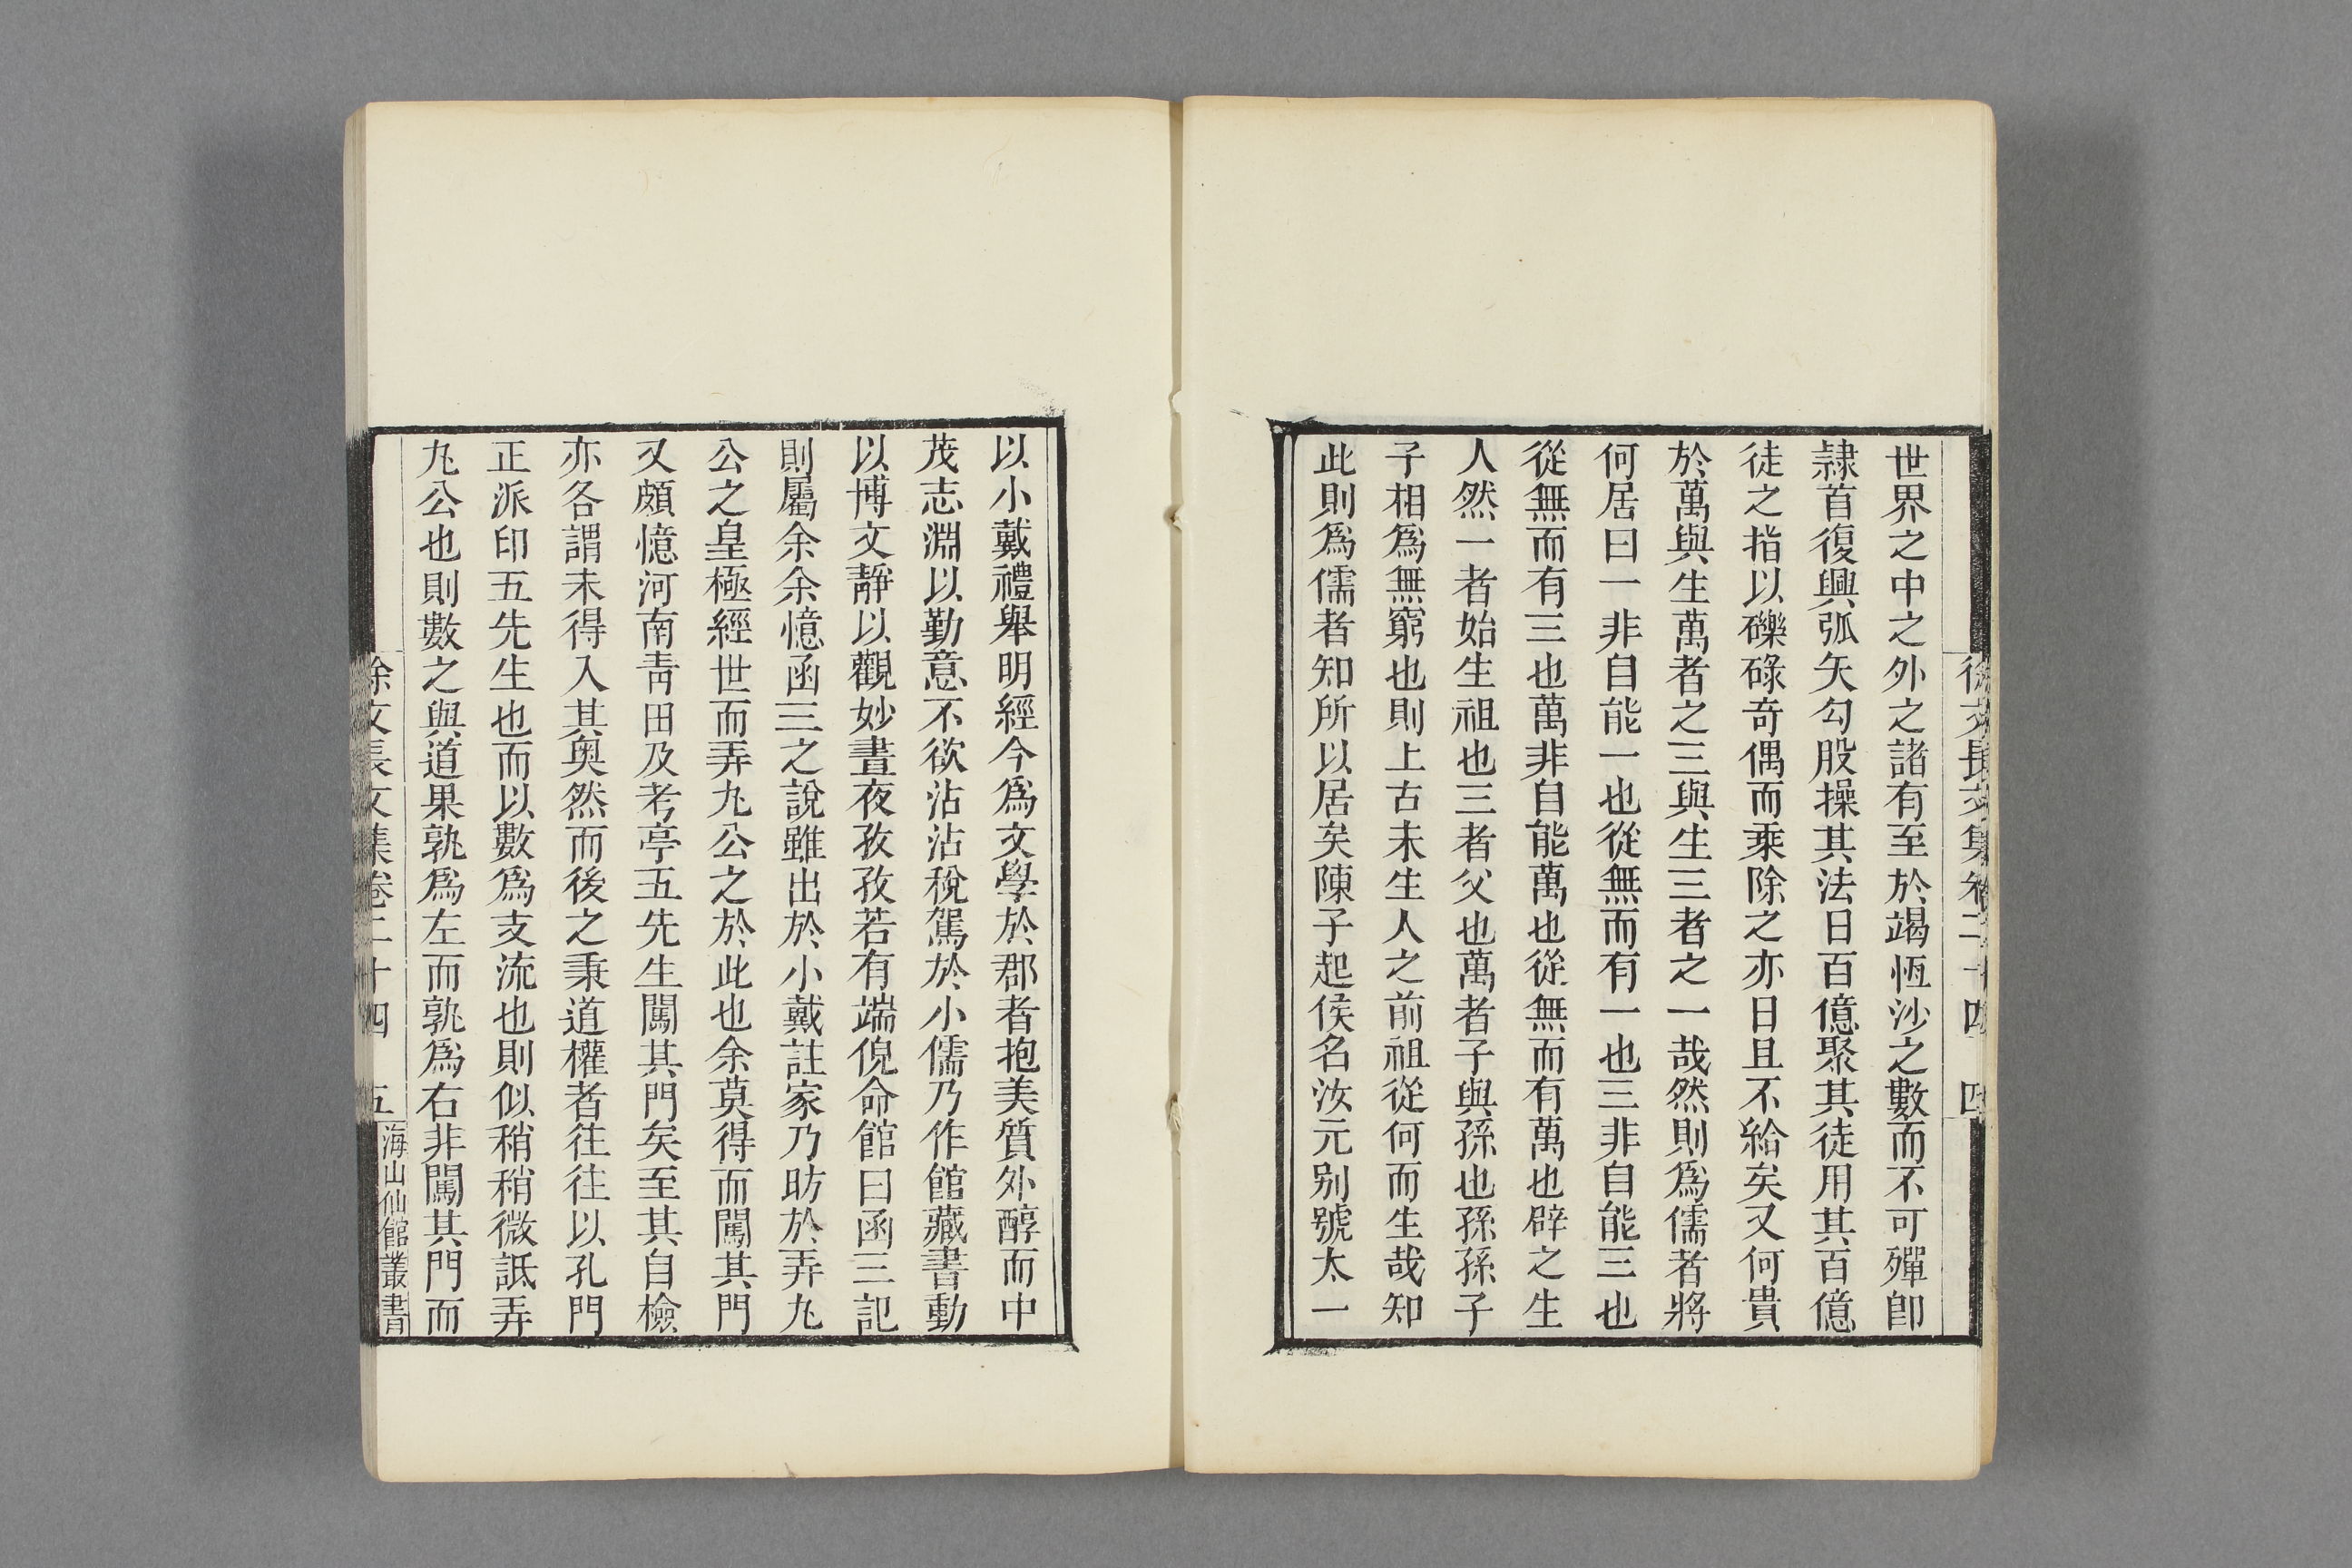 徐文長文集卷二十四 四
世界之中之外之諸有至於竭恆沙之數而不可殫卽
隸首復興弧矢勾股操其法日百億聚其徒用其百億
徒之指以礫碌奇偶而乘除之亦日且不給矣又何貴
於萬與生萬者之三與生三者之一哉然則爲儒者將
何居曰一非自能一也從無而有一也三非自能三也
從無而有三也萬非自能萬也從無而有萬也辟之生
人然一者始生祖也三者父也萬者子與孫也孫孫子
子相爲無窮也則上古未生人之前祖從何而生哉知
此則爲儒者知所以居矣陳子起侯名汝元别號太一
以小戴禮舉明經今爲文學於郡者抱美質外醇而中
茂志淵以勤意不欲沾沾稅駕於小儒乃作館藏書動
以博文靜以觀妙晝夜孜孜若有端倪命館曰函三記
則屬余余憶函三之說雖出於小戴註家乃昉於弄丸
公之皇極經世而弄丸公之於此也余莫得而闖其門
又頗憶河南靑田及考亭五先生闖其門矣至其自檢
亦各謂未得入其奥然而後之秉道權者往往以孔門
正派印五先生也而以數爲支流也則似稍稍微詆弄
丸公也則數之與道果孰爲左而孰爲右非闖其門而
徐文長文集卷二十四 五 海山仙館叢書